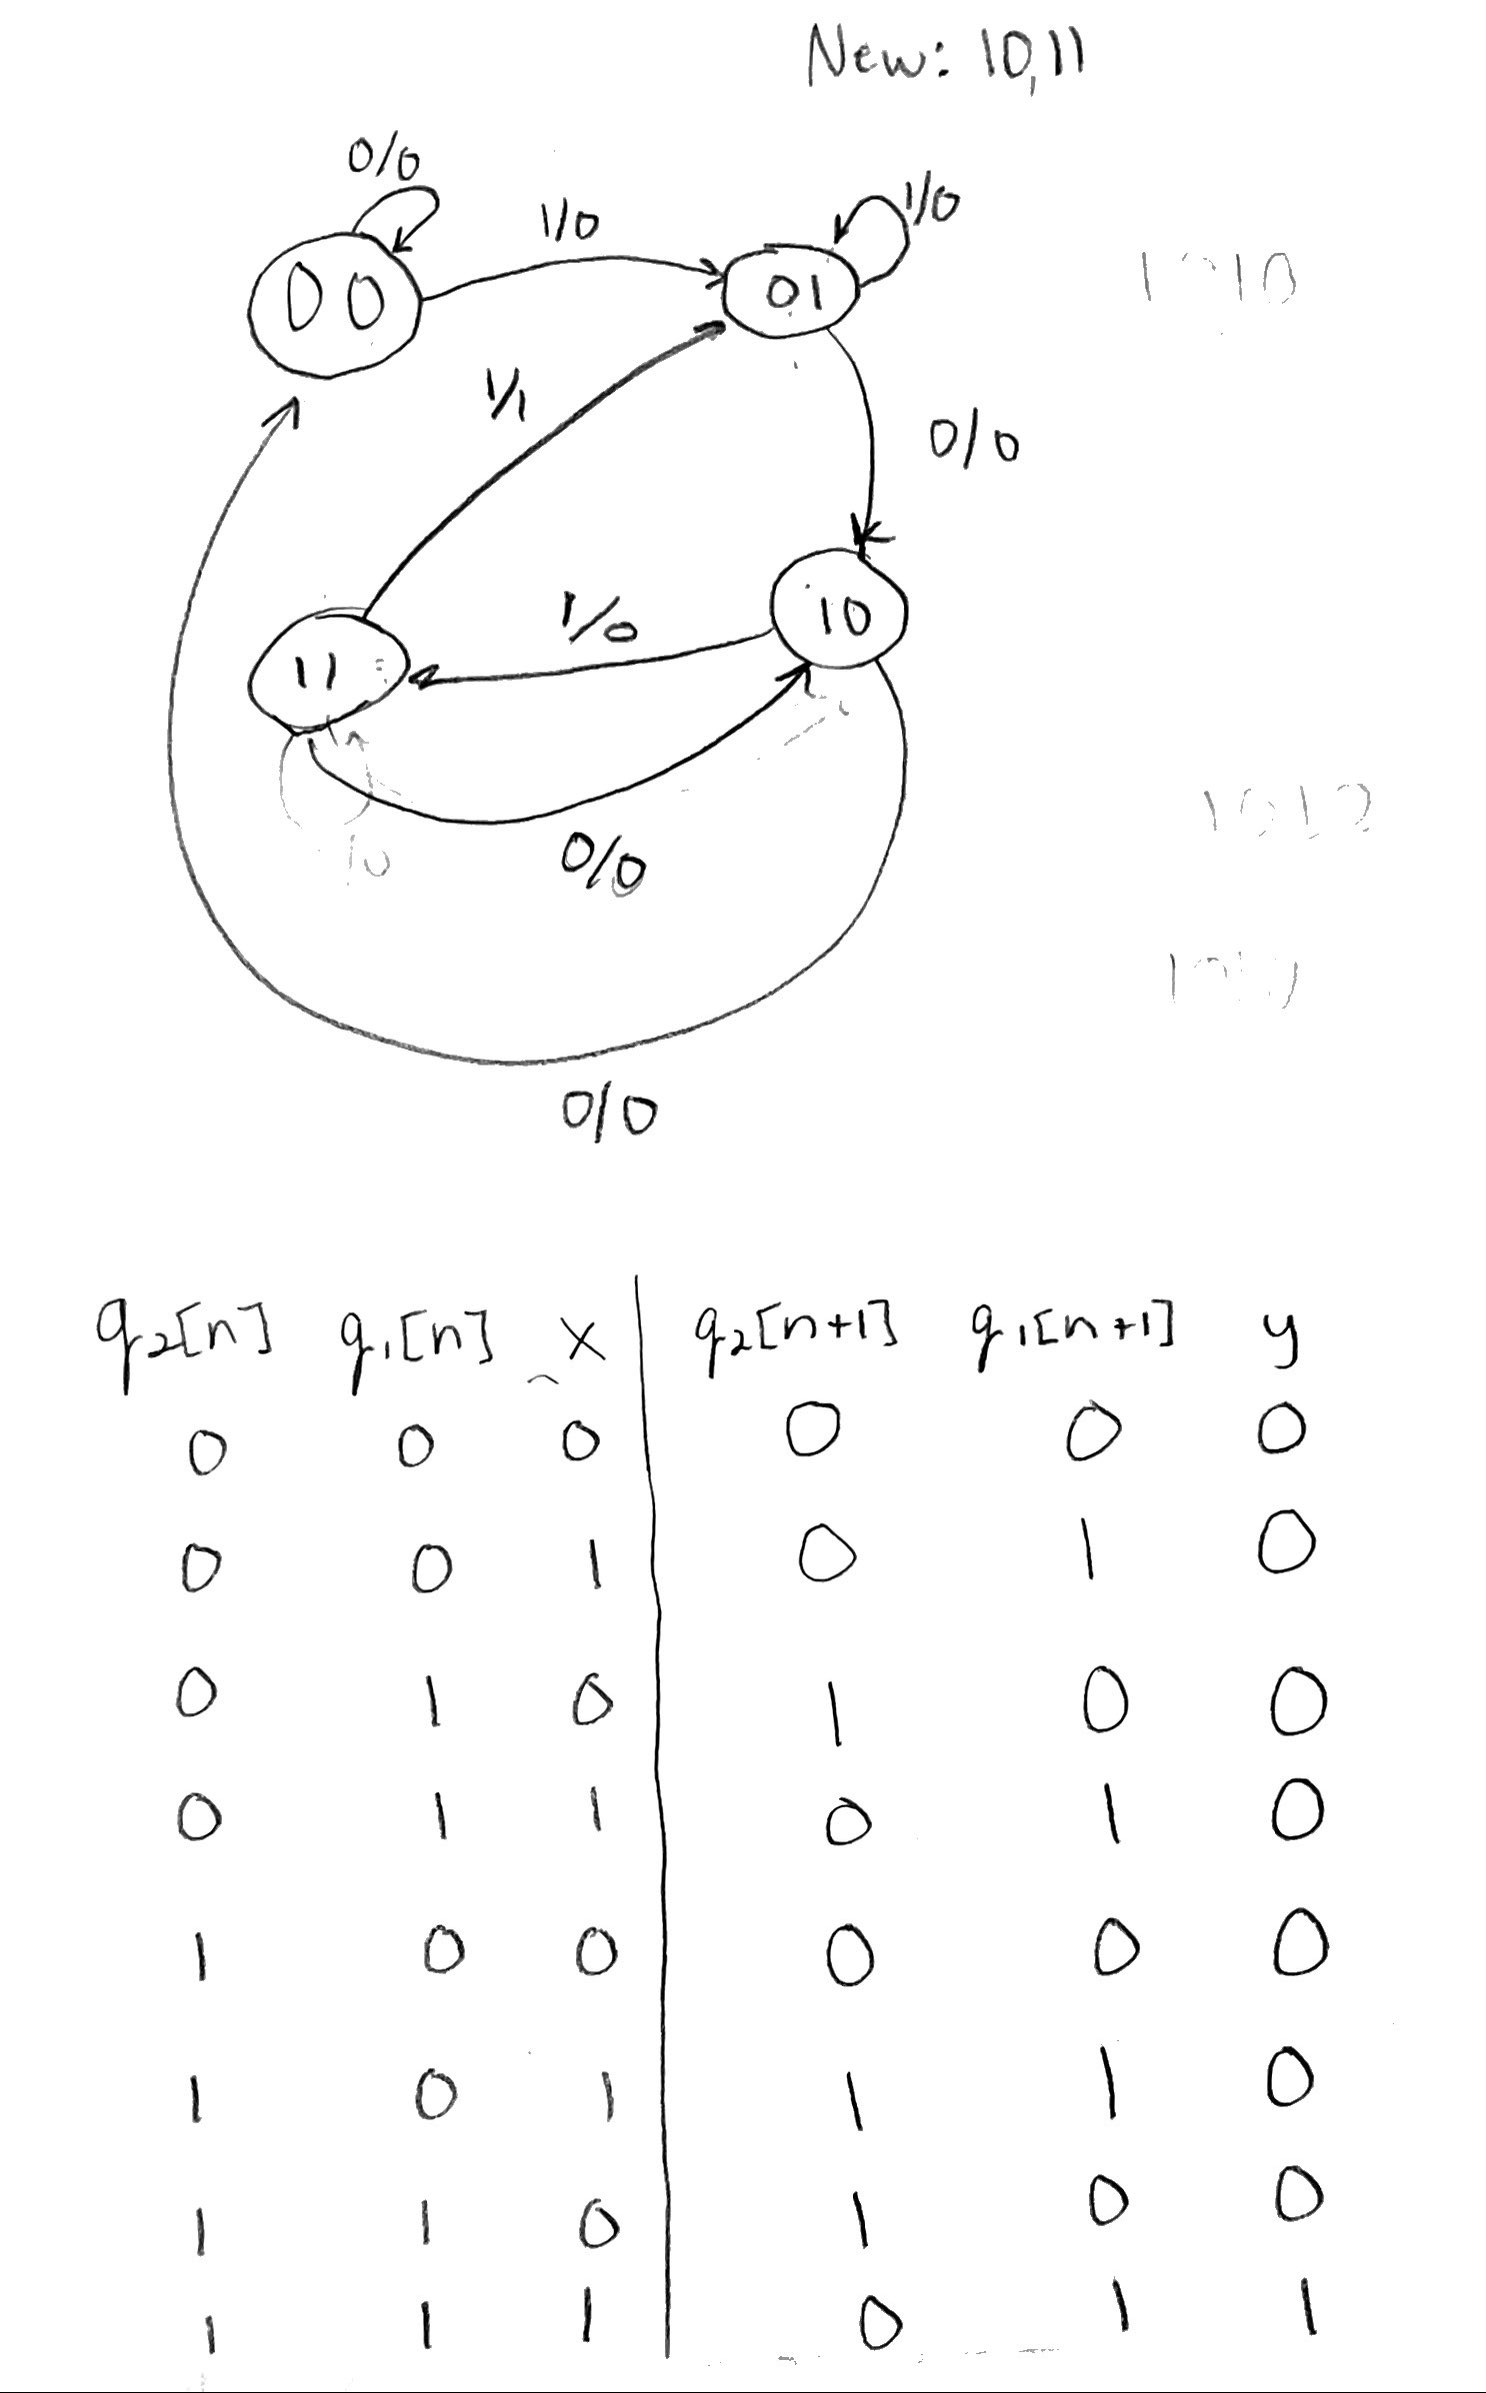 New: 10,11
0/0
1/0
1/0
00
01
1/1
0/0
1/0
10
11
0/0
0/0
q2[n] q1[n] x q2[n+1] q1[n+1] y
0 0 0 0 0 0
0 0 1 0 1 0
0 1 0 1 0 0
0 1 1 0 1 0
1 0 0 0 0 0
1 0 1 1 1 0
1 1 0 1 0 0
1 1 1 0 1 1